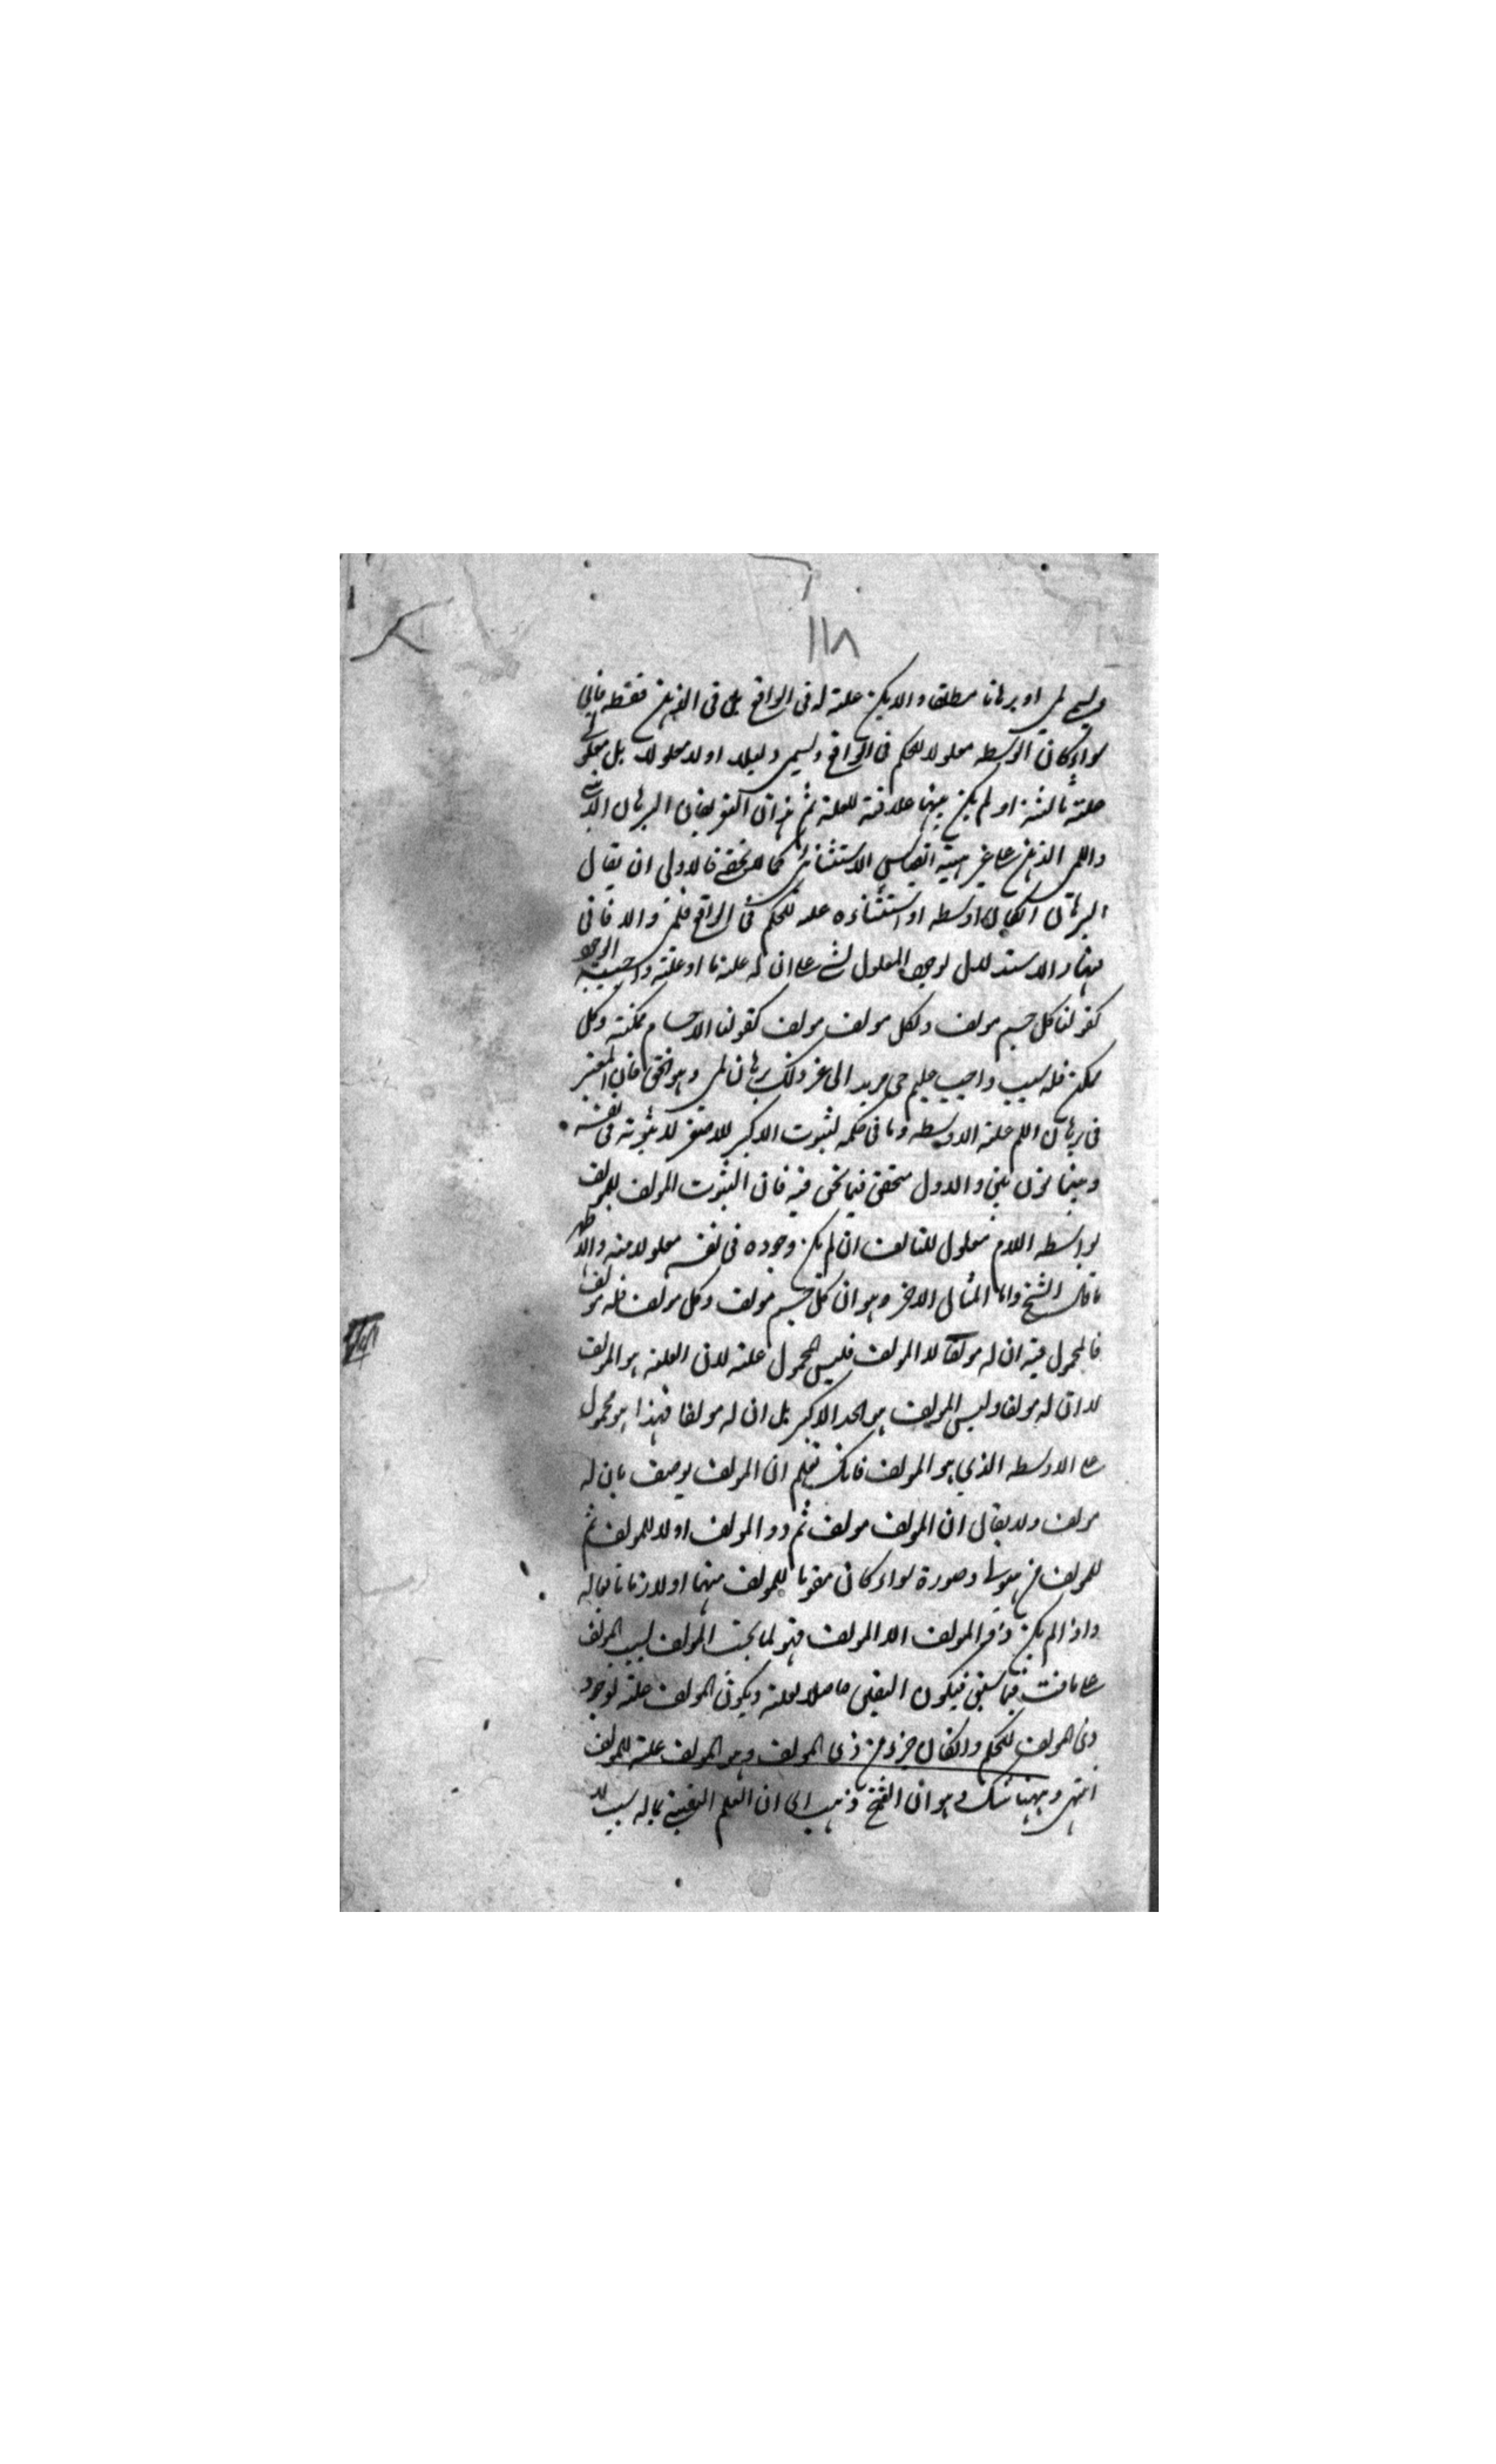 ١١٨
ويسمى لمى او برهانا مطلقا والا يكن علة له فى الواقع بل فى الذهن فقط فانى
سواء كان الاوسط معلولا للحكم فى الواقع ويسمى دليلا اولا معلولا بل معلولى
علة ثالثة او لم يكن بينهما علاقة للعلة ثم هذان التعريفان البرهان الانى
واللمى الذهن على غير هيئة القياس الاستثنائى كما لا يخفى فالاولى ان يقال
البرهان ان كان اوسطه او استثناءه علة للحكم فى الواقع فلمى والا فانى
ههنا والاستدلال لوجود المعلول لشئ على ان له علة ما او علة واجبية الوجود
كقولنا كل جسم مولف ولكل مولف مولف كقولنا الاجسام ممكنة وكل
ممكن فله سبب واجب عليم حى مريد الى غير ذلك برهان لمى وهو الحق فان المعتبر
فى برهان اللم علة الاوسط وما فى حكمه لثبوت الاكبر للاصغر لا ثبوته فى نفسه
وبينهما بون بين والاول متحقق فيما نحن فيه فان الثبوت المولف للمولف
بواسطة اللام معلول للتالف ان لم يكن وجوده فى نفسه معلولا منه والا ظهر
ما قال الشيخ واما المثال الاخر وهو ان كل جسم مولف وكل مولف فله مولف
فالمحمول فيه ان له مولفا لا المولف فليس المحمول علة لان العلة هو المولف
لا ان له مولفا وليس المولف هو الحد الاكبر بل ان له مولفا فهذا هو محمول
على الاوسط الذي هو المولف فانك تعلم ان المولف يوصف بان له
مولف ولا يقال ان المولف مولف ثم ذو المولف اولا للمولف ثم
للمولف من هيولى وصورة سواء كان مقوما للمولف منهما او لازما تابعا له
واذا لم يكن ذو المولف الا المولف فهو لما تحت المولف لسبب المولف
على ما فيما سبق فيكون اليقين حاصلا لعلة ويكون المولف علة لوجود
ذى المولف للحكم وان كان جزء من ذى المولف وهو المولف علة للمولف
انتهى وههنا شك وهو ان الشيخ ذهب الى ان العلم اليقينى بما له سبب لا